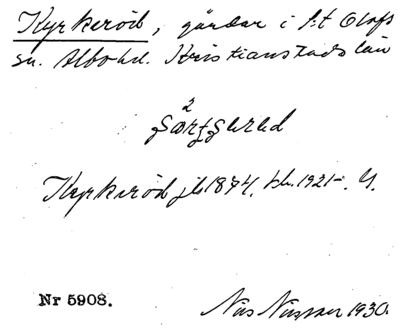 Kyrkeröd, gårdar i S:t Olofs
sn. Albo hd. Kristianstads län
2
Kyrkeröd jb 1874, tk. 1921-. Y.
Nr 5908.
Nils Nilsson 1930.